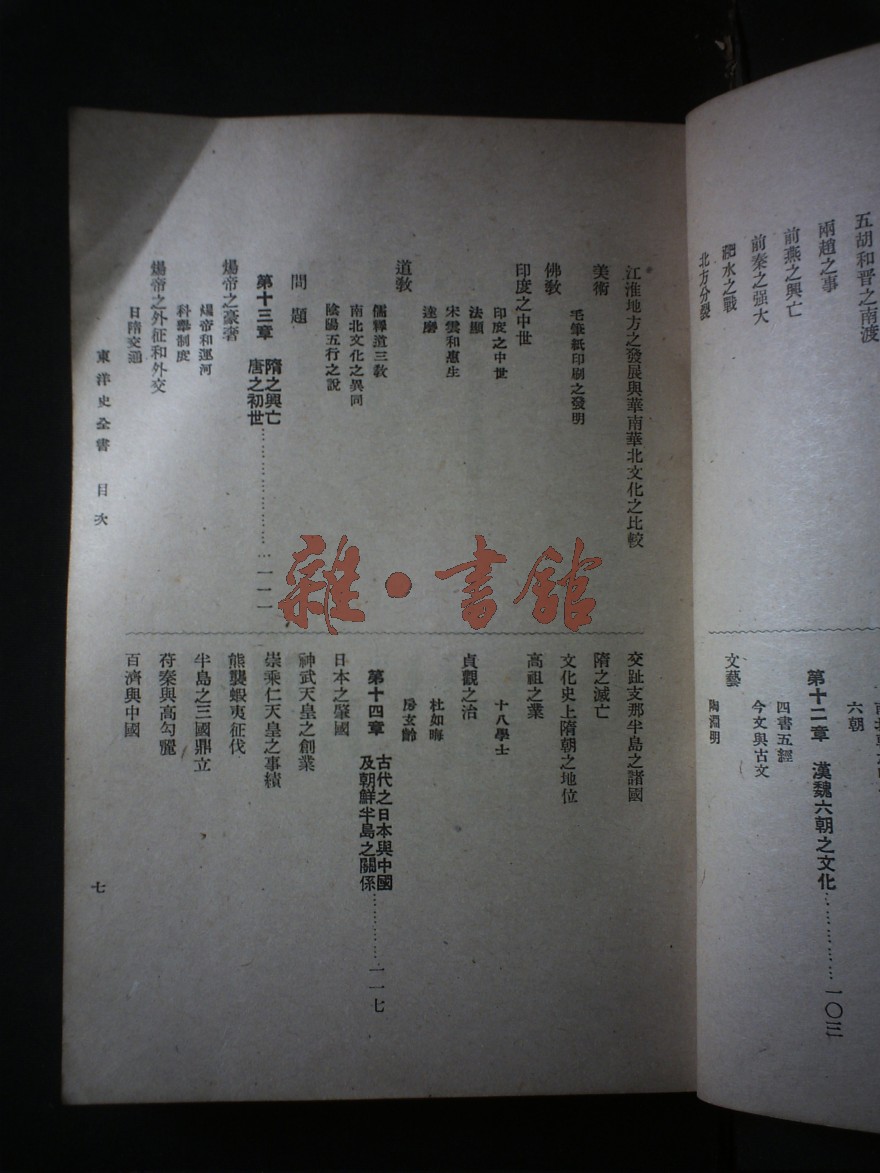 五胡和晋之南渡
兩趙之事
前燕之興亡
前秦之强大
淝水之戰
北方分裂
六朝
第十二章 漢魏六朝之文化……………一〇三
四書五經
今文與古文
文藝
陶淵明
江淮地方之發展與華南華北文化之比較
美術
毛筆紙印刷之發明
佛敎
印度之中世
印度之中世
法顯
宋雲和惠生
達磨
道敎
儒釋道三敎
南北文化之異同
陰陽五行之說
問題
第十三章 隋之興亡
唐之初世……………一一一
煬帝之豪奢
煬帝和運河
科舉制度
煬帝之外征和外交
日隋交通
交趾支那半島之諸國
隋之滅亡
文化史上隋朝之地位
高祖之業
十八學士
貞觀之治
杜如晦
房玄齡
第十四章 古代之日本與中國
及朝鮮半島之關係……………一一七
日本之肇國
神武天皇之創業
崇乘仁天皇之事績
熊襲蝦夷征伐
半島之三國鼎立
苻秦與高勾麗
百濟與中國
東洋史全書 目次
七
雜·書館